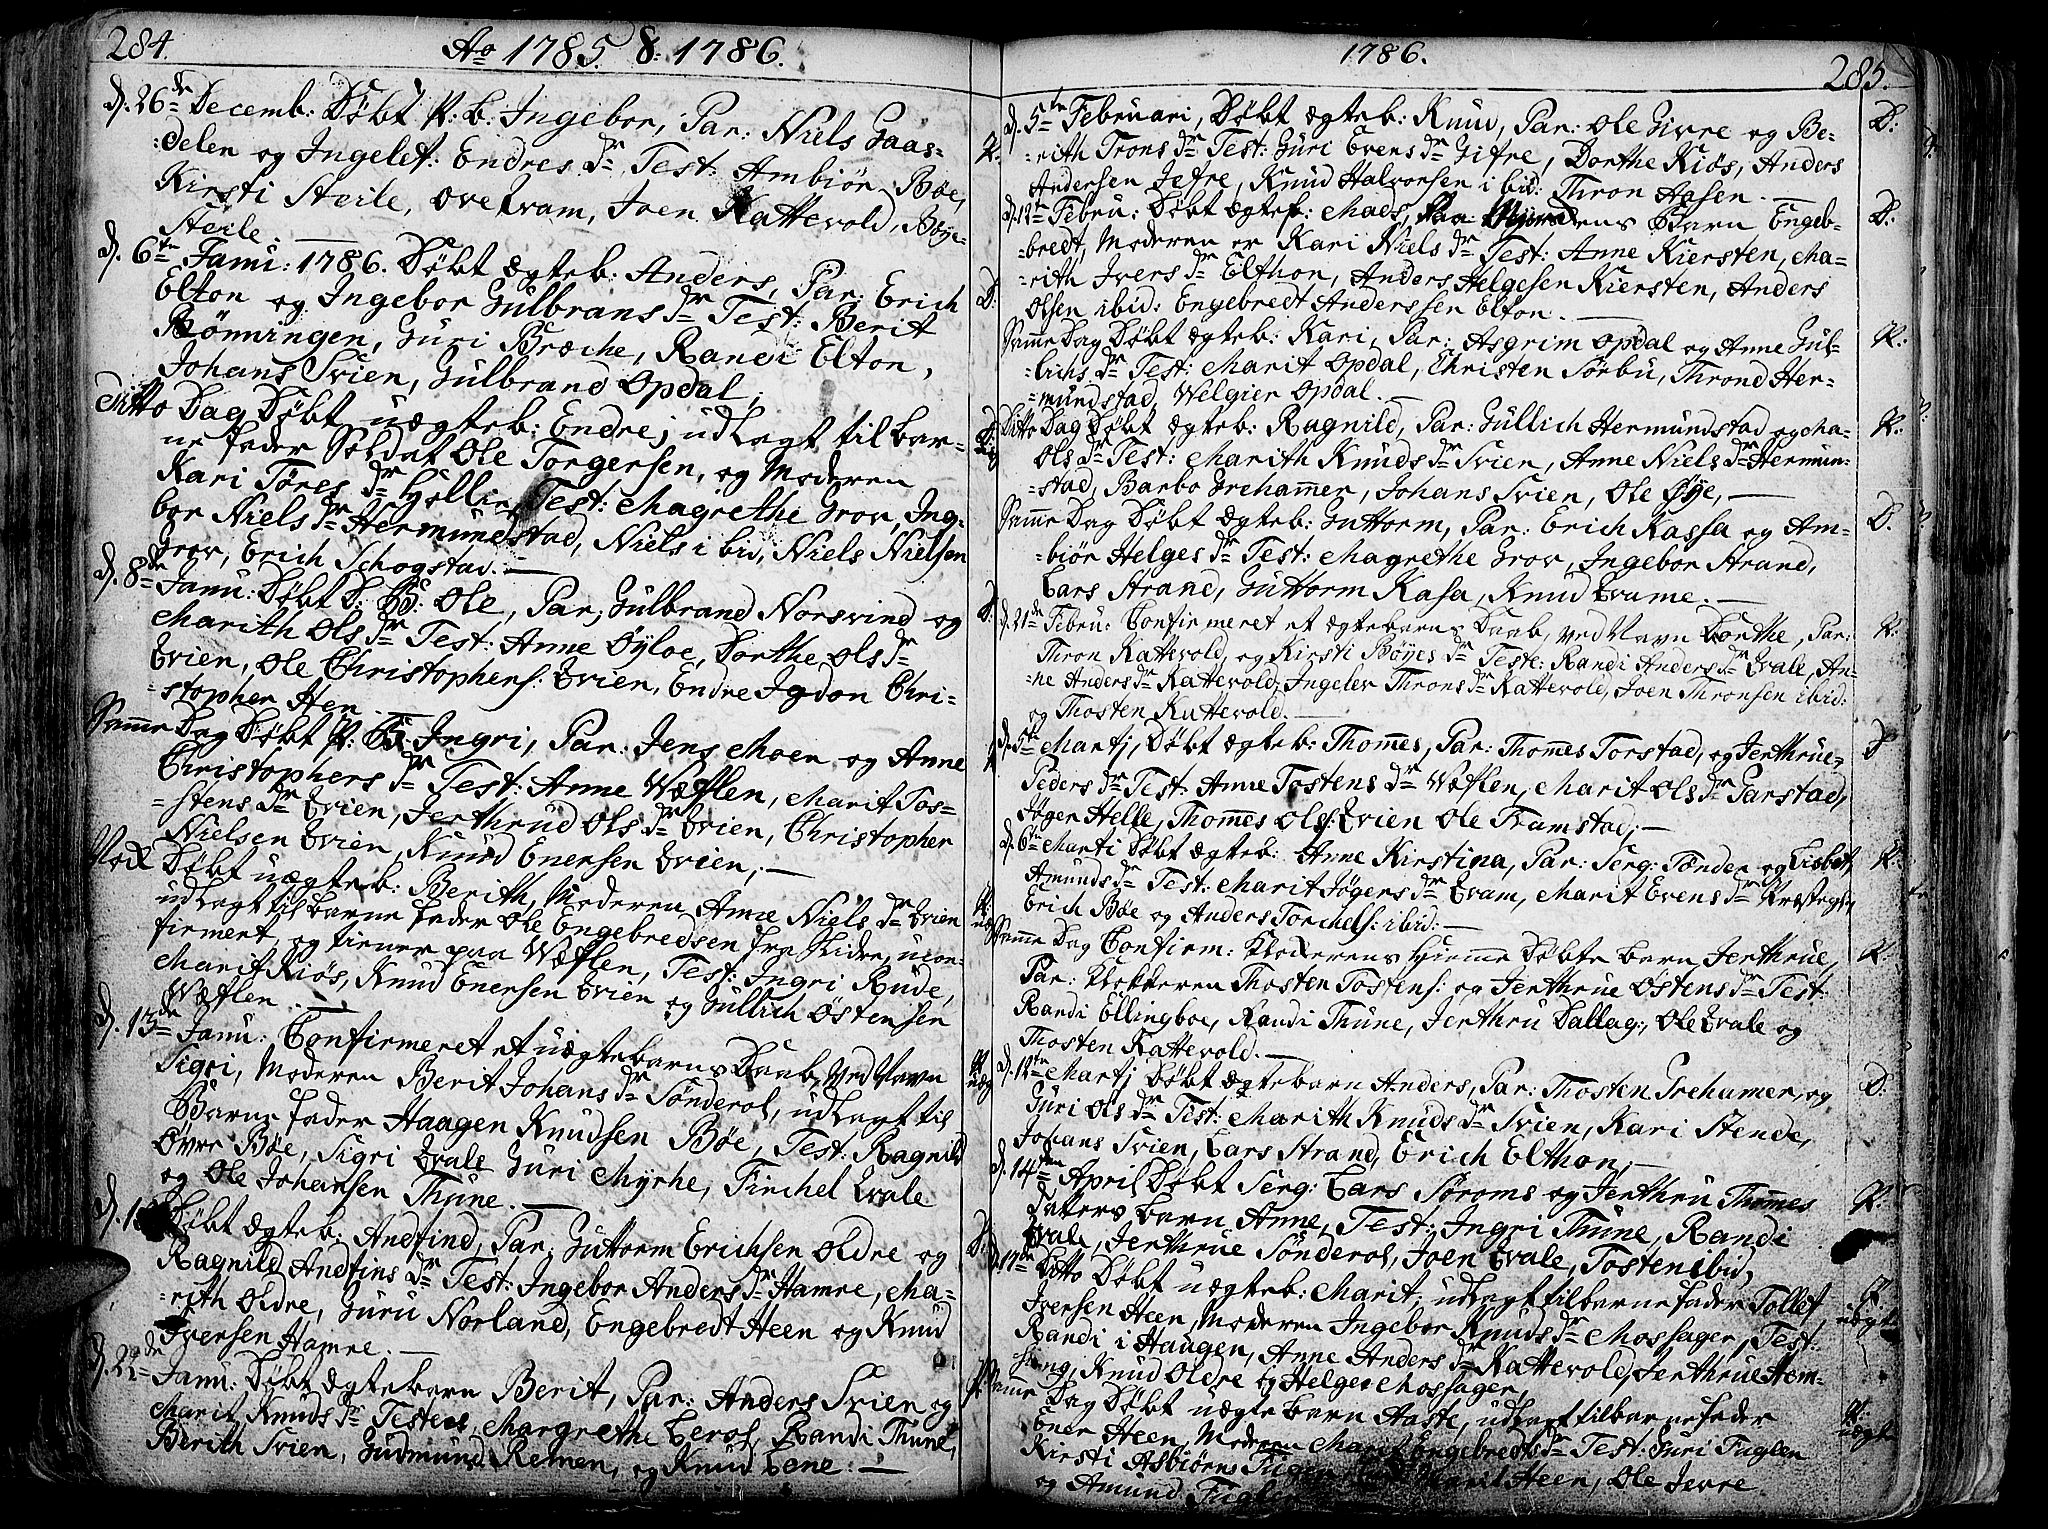 284.
Ao 1785 & 1786.
d. 26de Decemb: Døbt P: b. Ingebor, Par: Niels Gaas-
:delen og Ingelef: Endres dr Test: Ambiør Bøe,
Kirsti Steile, Ove Kvam, Joen Kattevold, Bøye
Steile.
K.
d. 6te Janu: 1786. Døbt Ægteb: Anders, Par: Erich
Elton og Ingebor Gulbrans dr Test: Berit
Rønningen, Guri Bræche, Randi Elton,
Johans Svien, Gulbrand Opdal.
D.
Ditto Dag Døbt uægteb: Endre, udlagt til bar-
ne fader Soldat Ole Torgersen, og Moderen
Kari Tores dr Test: Magrethe Grov, Inge-
bor Niels dr Hermundstad, Niels ibid, Niels Nielsen
Grov, Erich Schogstad.
d. 8de Janu: Døbt D: B: Ole, Par: Gulbrand Norsvind og
Marith Ols dr Test: Anne Øyloe, Dorthe Ols dr
Qvien, Ole Christophers: Qvien, Endre Igdon Chri-
-stopher Hen.
D:
Samme Dag Døbt P: B: Ingri, Par: Jens Moen og Anne
Christophers dr Test: Anne Wæflen, Marit Tos-
-stens dr Qvien, Jerthrud Ols dr Qvien, Christopher
Nielsen Qvien, Knud Enersen Qvien,
Nok Døbt uægteb: Berith, Moderen Anne Niels dr Qvien
udlagt til barne fader Ole Engebredsen fra Slidre, ucon-
firmert, og tiener paa Wæflen, Test: Ingri Rude,
Marit Kiøs, Knud Enersen Qvien og Gullich Østensen
Wæflen.
d. 13de Janu: Confirmeret et uægtebarns Daab, ved Navn
Sigri, Moderen Berit Johans dr Sønderol, udlagt til
Barne fader Haagen Knudsen Bøe, Test: Ragnild
Øvre Bøe, Sigri Qvale Guri Myrhe, Finchel Qvale
og Ole Johansen Thune.
Døbt Ægteb: Andfind, Par: Guttorm Erichsen Oldre og
Ragnild Andfins dr Test: Ingebor Anders dr Hamre, Ma-
-rith Oldre, Guru Norland, Engebredt Heen og Knud
Iversen Hamre.
D:
d. 22de Janu: Døbt Ægtebarn Berit, Par: Anders Svien og
Marit Knuds dr Testes Margrethe Lerol, Randi Thune,
Berith Svien, Gudmund Remen, og Knud Lene.
1786.
285.
d. 5te Februari, Døbt Ægteb: Knud, Par: Ole Givre og Be-
-rith Trons dr Test: Guri Evens dr Gifre, Dorthe Kiøs, Anders
Andersen Jefre, Knud Halvorsen ibid: Thron Aasen.
D:
d. 12te Febru: Døbt Ægteb: Mads, Barn Engeb-
-bredt, Moderen er Kari Niels dr Test: Anne Kiersten, Ma-
-rith Ivers dr Elthon, Anders Helgesen Kiersten, Anders
Olsen ibid: Engebredt Anderssen Elton.
D:
Samme Dag Døbt Ægteb: Kari, Par: Asgrim Opdal og Anne Gul-
-lichs dr Test: Marit Opdal, Christen Sørbu, Thrond Her-
-mundstad, Welgier Opdal.
K:
Ditto Dag Døbt Ægteb: Ragnild, Par: Gullich Hermundstad og Ma-
Ols dr Test: Marith Knuds dr Svien, Anne Niels dr Hermun-
-stad, Barbo Grehammer, Johans Svien, Ole Øye,
K:
Samme Dag Døbt Ægteb: Guttorm, Par: Erich Kassa og Am-
-biør Helges dr Test: Magrethe Grov, Ingebor Strand,
Lars Strand, Guttorm Kasa, Knud Qvame.
D.
d. 21de Febru: Confirmeret et Ægtebarns Daab, ved Navn Dorthe, Par:
Thron Kattevold, og Kirsti Bøyes dr Teste: Randi Anders dr Qvale, An-
-ne Anders dr Kattevold, Ingelev Throns dr Kattevold, Joen Thronsen ibid:
og Thosten Kattevold.
K:
d. 5te Martj, Døbt Ægteb: Thomes, Par: Thomes Torstad, og Jerthrue
Peders dr Test: Anne Tostens dr Wæflen, Marit Ols dr Parstad,
Jøger Helle, Thomes Ols: Qvien Ole Framstad,
d. 6te Marti Døbt Ægteb: Anne Kirstina, Par: Serg: Tønder og Lisbet
Amunds dr Test: Marit Jøgers dr Qvam, Marit Evens dr
Erich Bøe og Anders Torchels: ibid:
K:
Samme Dag Confirm: Klockerens Hiemme Døbte barn Jerthrue,
Par: Klockeren Thosten Tostens: og Jerthrue Østens dr Test:
Randi Ellingboe, Randi Thune, Jerthru Dallag:, Ole Qvale og
Thosten Kattevold.
K.
d. 12te Martj Døbt Ægtebarn Anders, Par: Thosten Grehamer, og
Guri Ols dr Test: Marith Knuds dr Svien, Kari Stende,
Johans Svien, Lars Strand, Erich Elthon,
D:
d. 14den April Døbt Serg: Lars Sørums og Jerthru Thomes
datters barn Anne, Test: Ingri Thune, Randi
Qvale, Jerthrue Sønderol, Joen Qvale, Tosten ibid,
K:
d. 17de Ditto Døbt uægteb: Marit, udlagt til barne fader Tollef
Iversen Heen, Moderen Ingebor Knuds dr Mossager, Test:
Randi i Haugen, Anne Anders dr Kattevold, Jerthrue Hem-
sing, Knud Oldre og Helge Mossager,
uægt
Samme Dag Døbt uægtebarn Aaste, udlagt til barne fader
Ener Heen, Moderen Marit Engebredts dr Test: Guri Fuglen
Kirsti Asbiørns Marit Heen, Ole Jevre
og Amund Fuglen
uægt